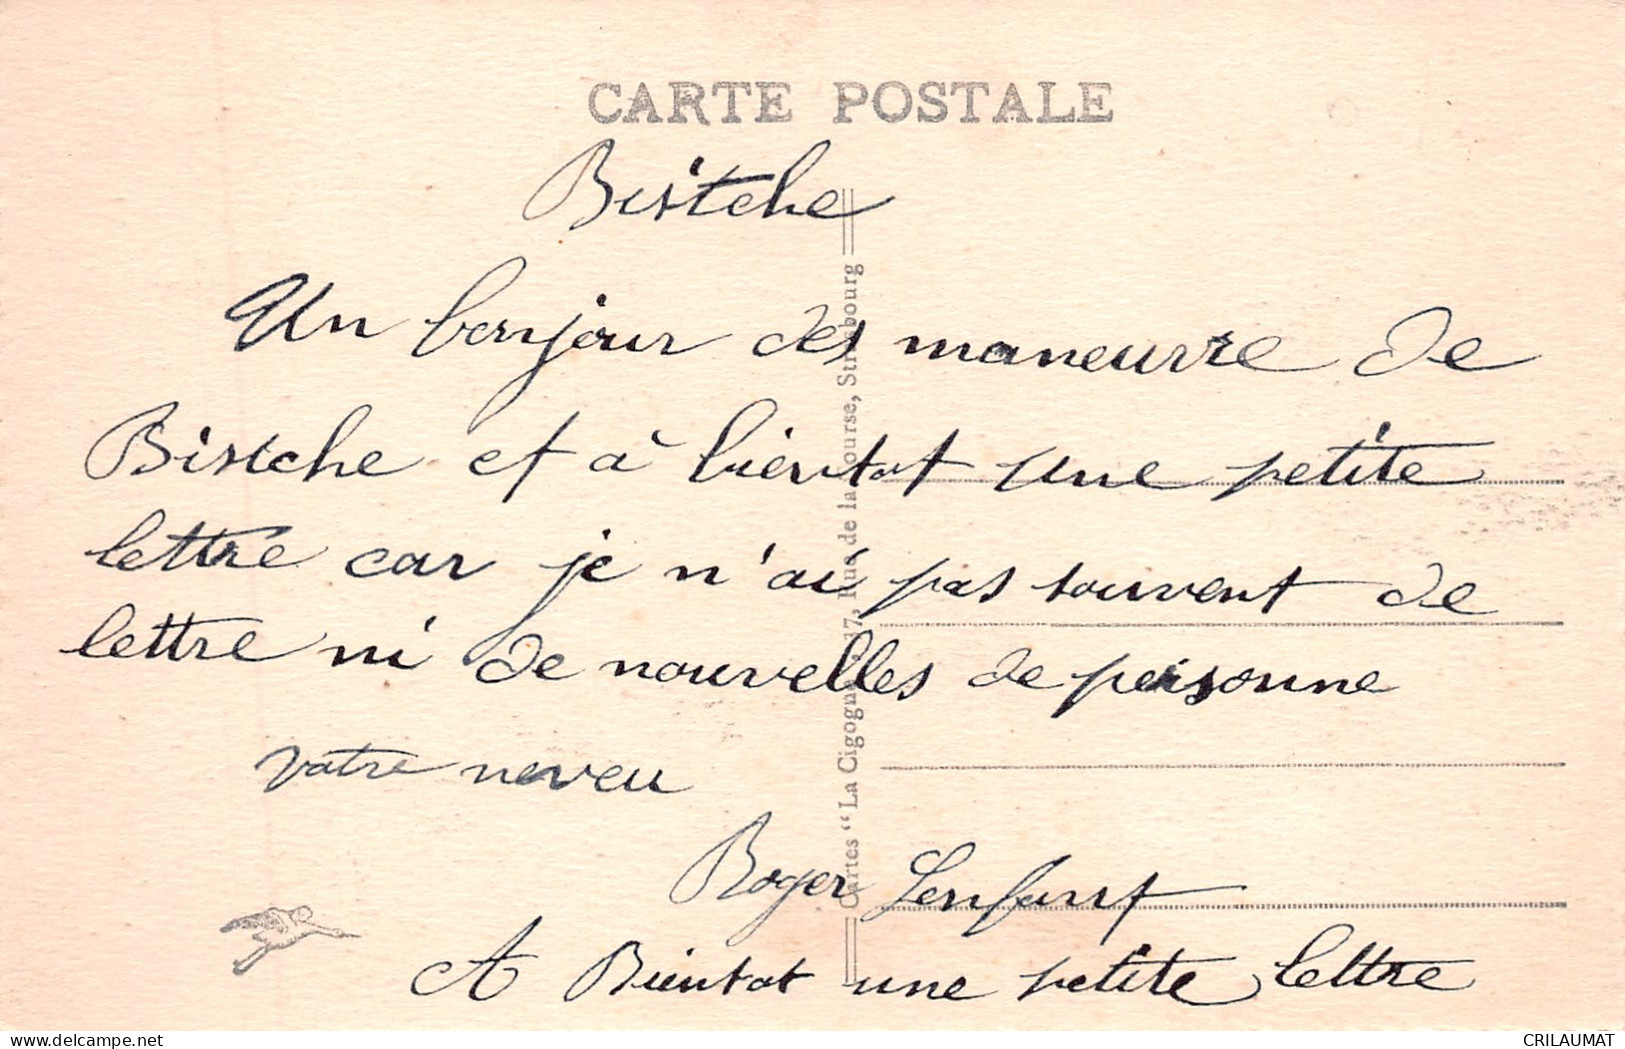 CARTE POSTALE
Bistche
Un bonjour des maneuvre de
Bistche et à bientot une petite
lettre car je n'ai pas souvent de
lettre ni de nouvelles de personne
votre neveu
Roger Lenfant
A Bientot une petite lettre
Cartes "La Cigogne", 37, Rue de la Course, Strasbourg
delcampe.net
CRILAUMAT